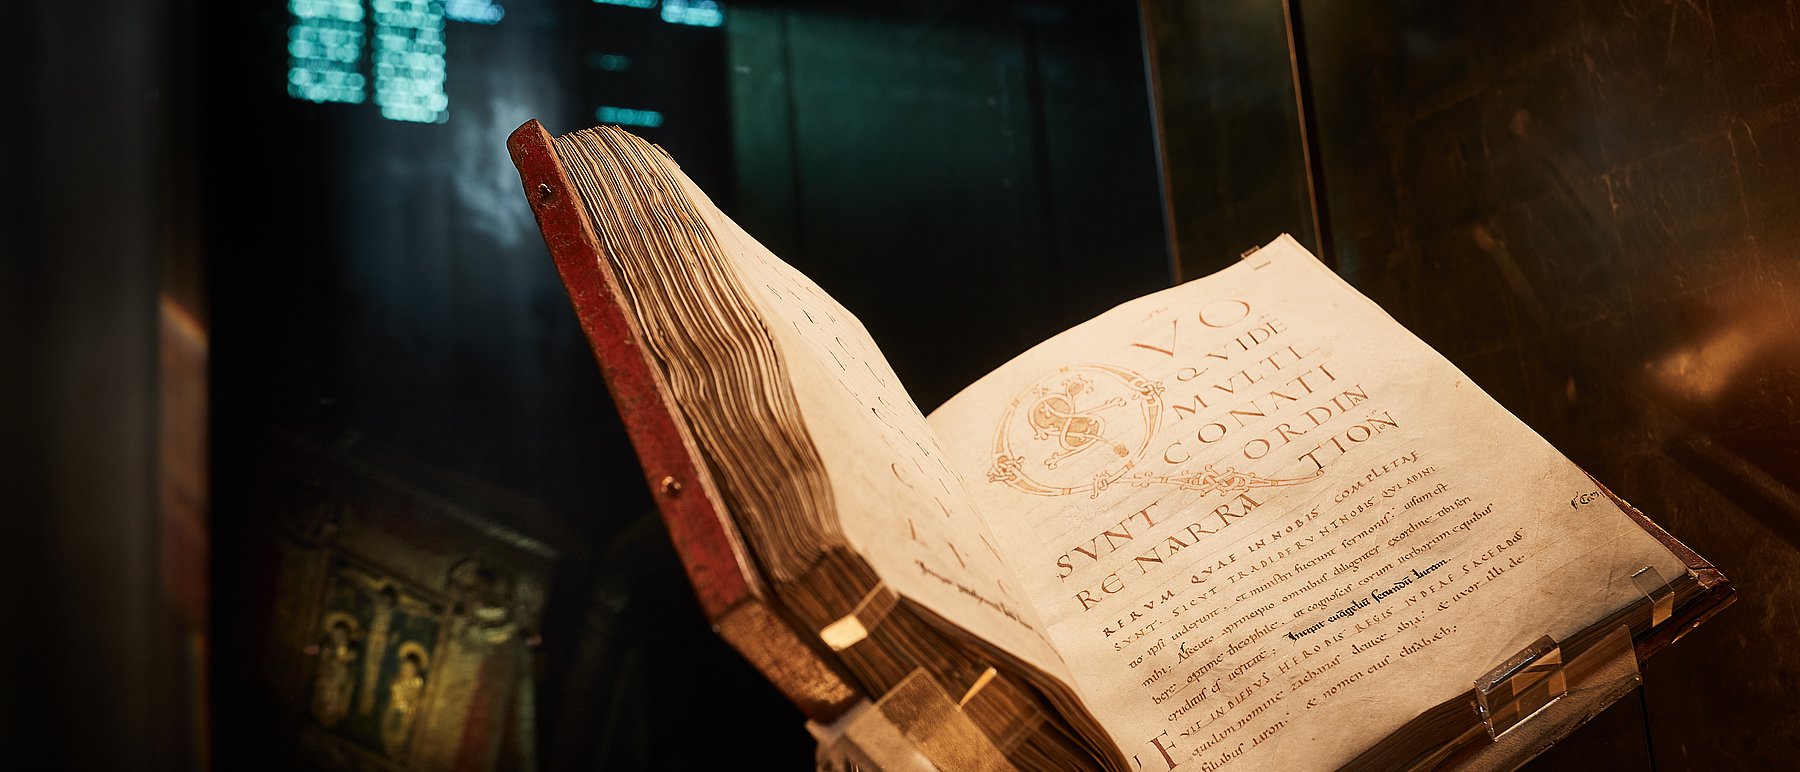 QVO
QVIDE
MVLTI
CONATI
SVNT ORDIN
RE NARRA TION
RERVM QVAE IN NOBIS COMPLETAE
SVNT. SICVT TRADIDERVNT NOBIS QVI ABINI
tio ipsi uiderunt, et ministri fuerunt sermonis; uisum est
mihi; Assecuto aprincipio omnibus diligenter exordine tibi scri
bere optime theophile, ut cognoscas eorum uerborum e quibus
eruditus es ueritate; Incipit euangeliū secundū lucam.
FVIT IN DIEBVS HERODIS REGIS IVDEAE SACERDOS
quidam nomine zacharias deuice abia; & uxor illi de
filiabus aaron; & nomen eius elisabeth;